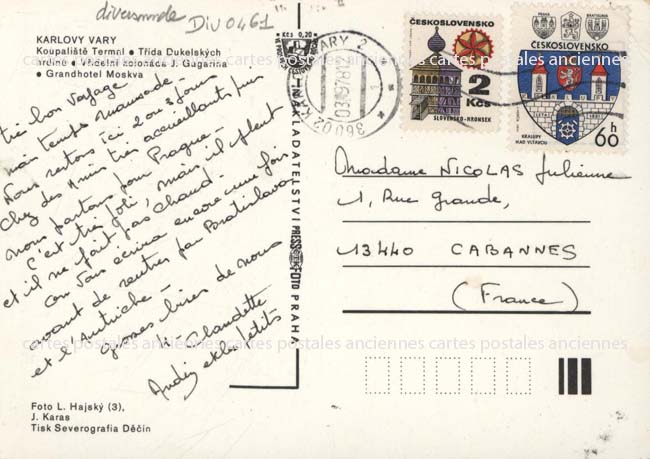 diversmonde
DIV0461
KARLOVY VARY
Koupaliště Terml • Třída Dukelských
hrdinů • Vřídelní kolonáda J. Gagarina
• Grandhotel Moskva
très bon voyage
mais temps maussade.
Nous restons ici 2 ou 3 jours
Chez des Amis très accueillants puis
nous partons pour Prague -
C'est très joli, mais il pleut
et il ne fait pas chaud.
on vous écrira encore une fois
avant de rentrer par Bratislava
et l'Autriche -
grosses bises de nous
Claudette
et les petits
Foto L. Hajský (3),
J. Karas
Tisk Severografia Děčín
Kčs 0,20
NAKLADATELSTVÍ PRESSFOTO PRAHA
KARLOVY VARY 2
360 02
ČESKOSLOVENSKO
2
Kčs
SLOVENSKO-HRONSEK
ČESKOSLOVENSKO
KRALUPY
NAD VLTAVOU
60h
Madame NICOLAS Julienne
1, Rue Grande,
13440 CABANNES
(France)
cartes postales anciennes cartes postales anciennes cartes postales anciennes